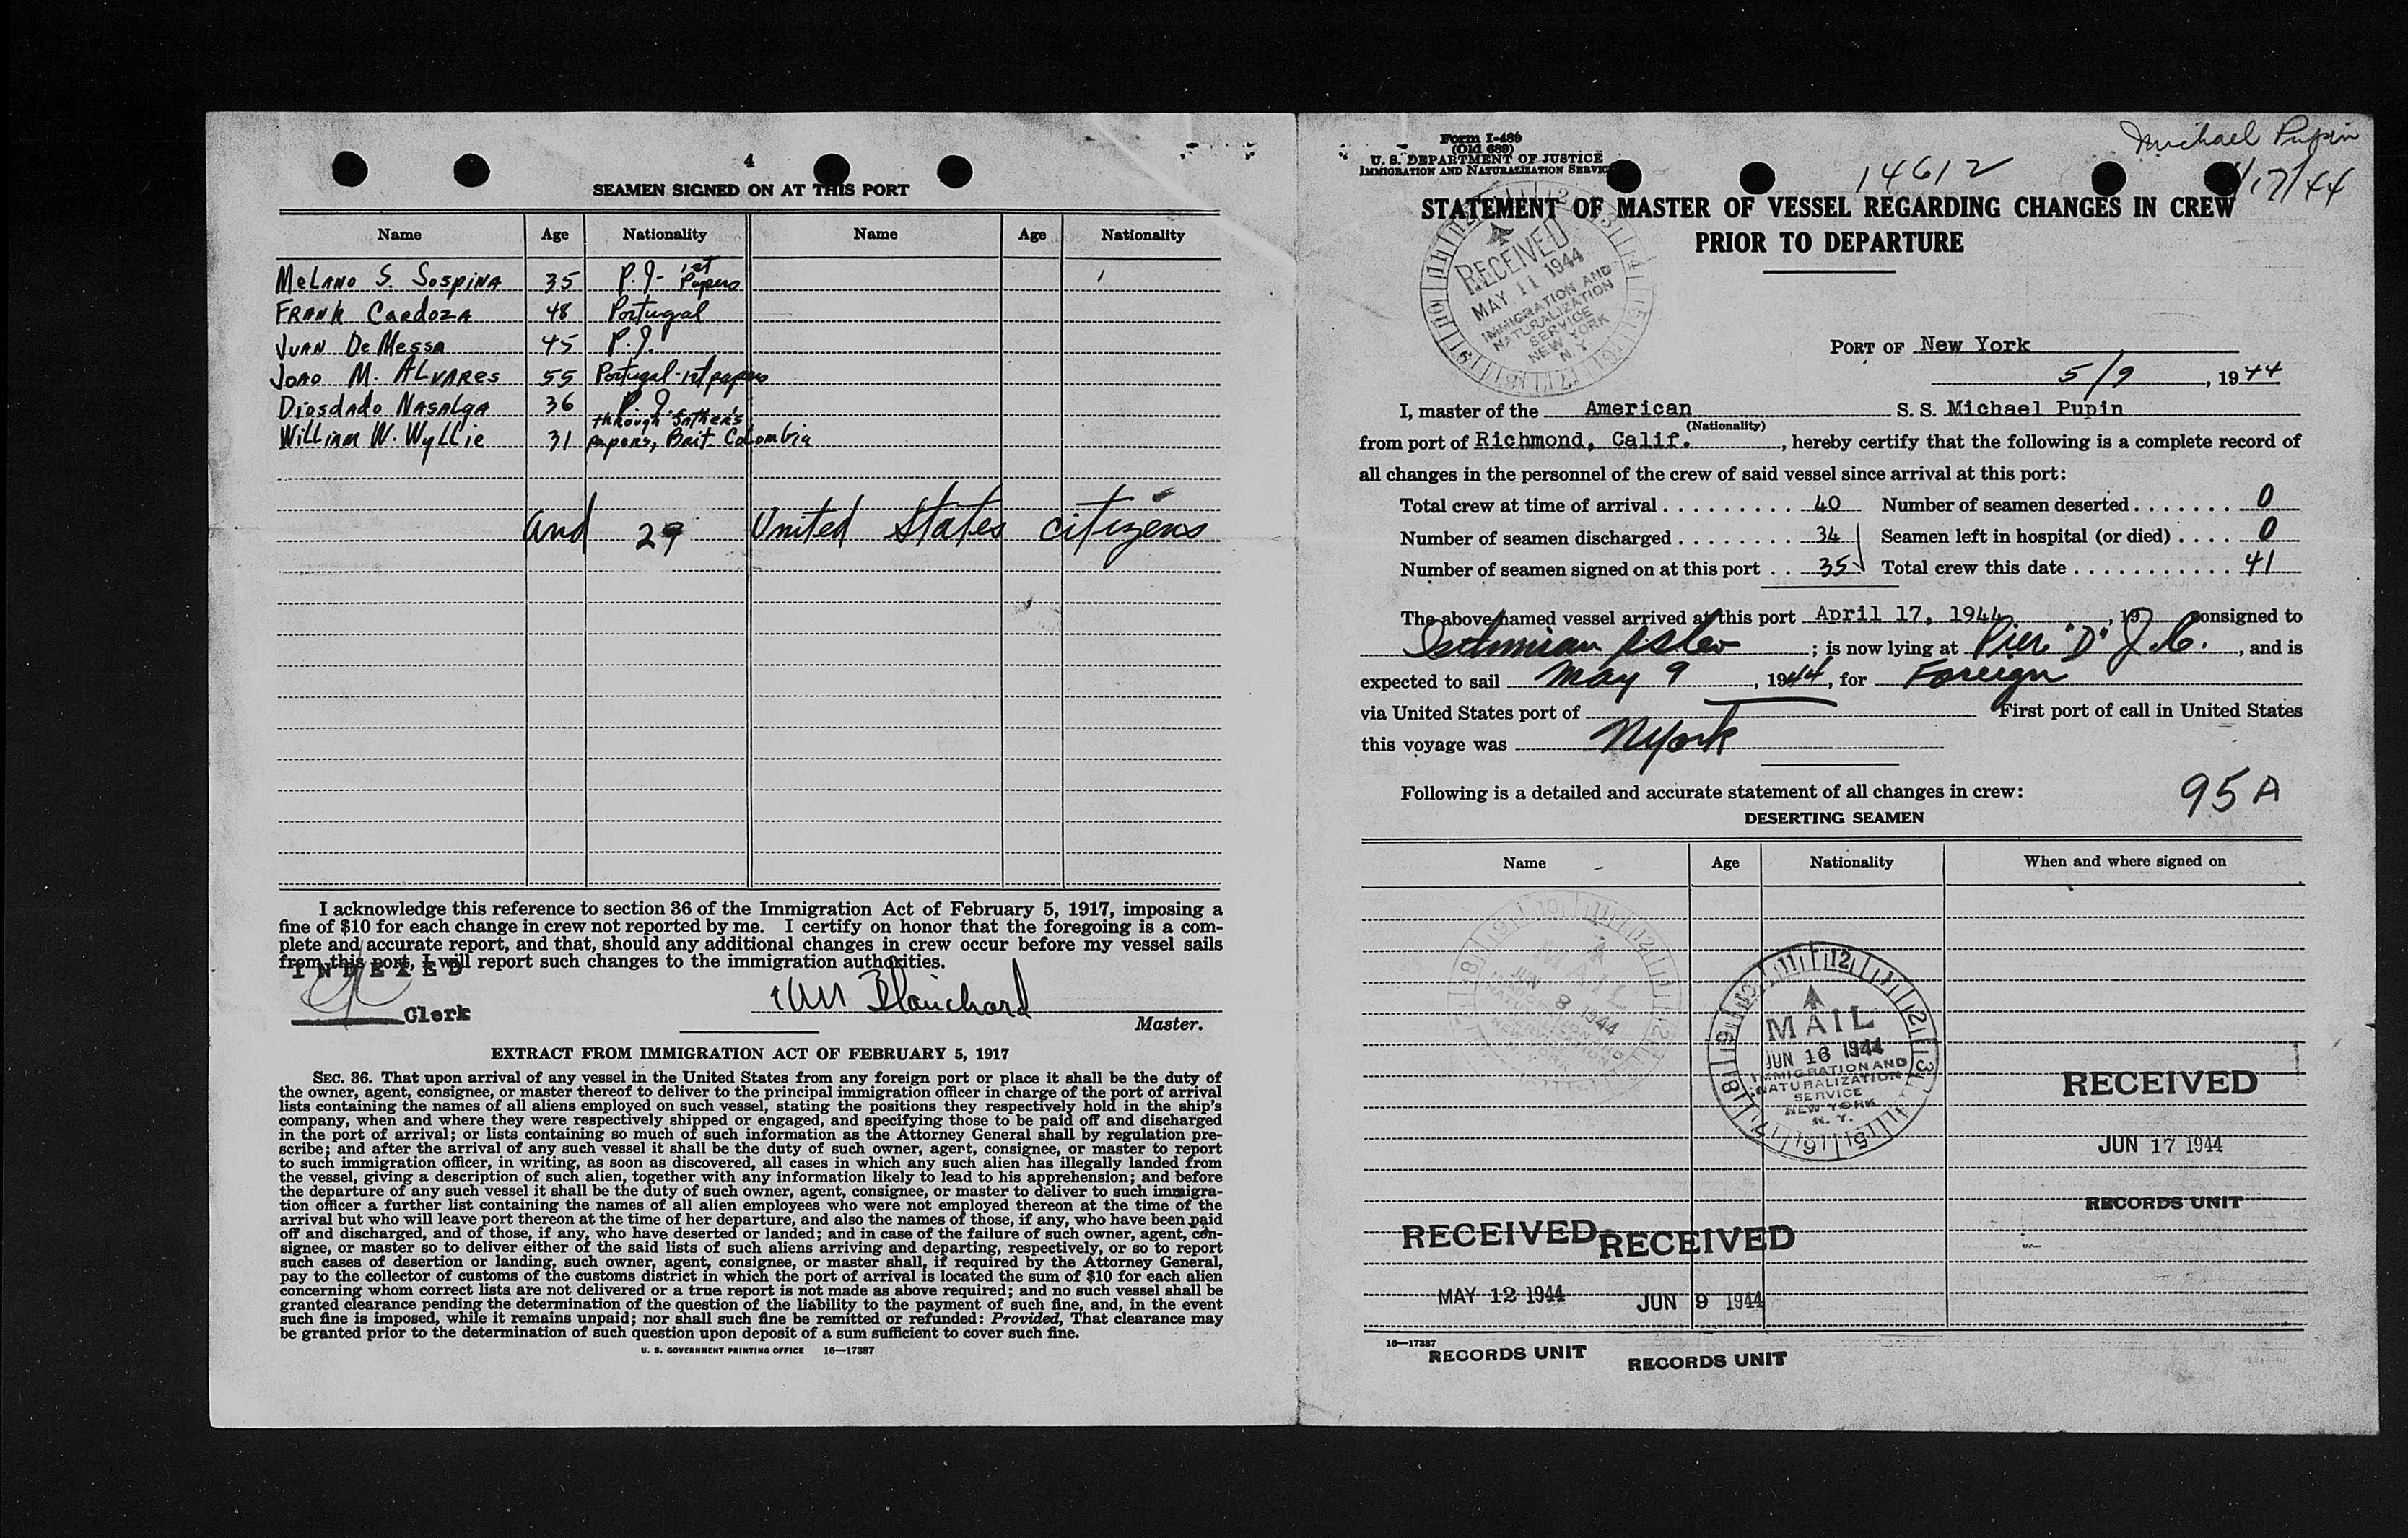 4
SEAMEN SIGNED ON AT THIS PORT
Name Age Nationality Name Age Nationality
MELANO S. SOSPINA 35 P.I.- 1st Papers
FRANK CARDOZA 48 Portugal
JUAN DE MESSA 45 P.I.
JOAO M. ALVARES 55 Portugal-1st papers
DIOSDADO NASALGA 36 P.I.
WILLIAM W. WYLLIE 31 through father's papers, Brit. Colombia
and 29 United States citizens
I acknowledge this reference to section 36 of the Immigration Act of February 5, 1917, imposing a
fine of $10 for each change in crew not reported by me. I certify on honor that the foregoing is a com-
plete and accurate report, and that, should any additional changes in crew occur before my vessel sails
from this port, I will report such changes to the immigration authorities.
INDEXED
Clerk
Blanchard
Master.
EXTRACT FROM IMMIGRATION ACT OF FEBRUARY 5, 1917
SEC. 36. That upon arrival of any vessel in the United States from any foreign port or place it shall be the duty of
the owner, agent, consignee, or master thereof to deliver to the principal immigration officer in charge of the port of arrival
lists containing the names of all aliens employed on such vessel, stating the positions they respectively hold in the ship's
company, when and where they were respectively shipped or engaged, and specifying those to be paid off and discharged
in the port of arrival; or lists containing so much of such information as the Attorney General shall by regulation pre-
scribe; and after the arrival of any such vessel it shall be the duty of such owner, agent, consignee, or master to report
to such immigration officer, in writing, as soon as discovered, all cases in which any such alien has illegally landed from
the vessel, giving a description of such alien, together with any information likely to lead to his apprehension; and before
the departure of any such vessel it shall be the duty of such owner, agent, consignee, or master to deliver to such immigra-
tion officer a further list containing the names of all alien employees who were not employed thereon at the time of the
arrival but who will leave port thereon at the time of her departure, and also the names of those, if any, who have been paid
off and discharged, and of those, if any, who have deserted or landed; and in case of the failure of such owner, agent, con-
signee, or master so to deliver either of the said lists of such aliens arriving and departing, respectively, or so to report
such cases of desertion or landing, such owner, agent, consignee, or master shall, if required by the Attorney General,
pay to the collector of customs of the customs district in which the port of arrival is located the sum of $10 for each alien
concerning whom correct lists are not delivered or a true report is not made as above required; and no such vessel shall be
granted clearance pending the determination of the question of the liability to the payment of such fine, and, in the event
such fine is imposed, while it remains unpaid; nor shall such fine be remitted or refunded: Provided, That clearance may
be granted prior to the determination of such question upon deposit of a sum sufficient to cover such fine.
U. S. GOVERNMENT PRINTING OFFICE 16—17387
Form I-489
(Old 689)
U. S. DEPARTMENT OF JUSTICE
IMMIGRATION AND NATURALIZATION SERVICE
14612
Michael Pupin
/17/44
STATEMENT OF MASTER OF VESSEL REGARDING CHANGES IN CREW
PRIOR TO DEPARTURE
RECEIVED
MAY 11 1944
IMMIGRATION AND
NATURALIZATION
SERVICE
NEW YORK
N.Y
PORT OF New York
5/9, 1944
I, master of the American S. S. Michael Pupin
(Nationality)
from port of Richmond, Calif., hereby certify that the following is a complete record of
all changes in the personnel of the crew of said vessel since arrival at this port:
Total crew at time of arrival 40 Number of seamen deserted 0
Number of seamen discharged 34 Seamen left in hospital (or died) 0
Number of seamen signed on at this port 35 Total crew this date 41
The above named vessel arrived at this port April 17, 1944, 19 consigned to
Isthmian ; is now lying at Pier "D" J.C., and is
expected to sail May 9, 1944, for Foreign
via United States port of First port of call in United States
this voyage was NYork
Following is a detailed and accurate statement of all changes in crew:
95 A
DESERTING SEAMEN
Name Age Nationality When and where signed on
MAIL
JUN 8 1944
IMMIGRATION AND
NATURALIZATION
SERVICE
NEW YORK
MAIL
JUN 16 1944
IMMIGRATION AND
NATURALIZATION
SERVICE
NEW YORK
N. Y.
RECEIVED
JUN 17 1944
RECORDS UNIT
RECEIVED RECEIVED
MAY 12 1944 JUN 9 1944
16—17387
RECORDS UNIT RECORDS UNIT